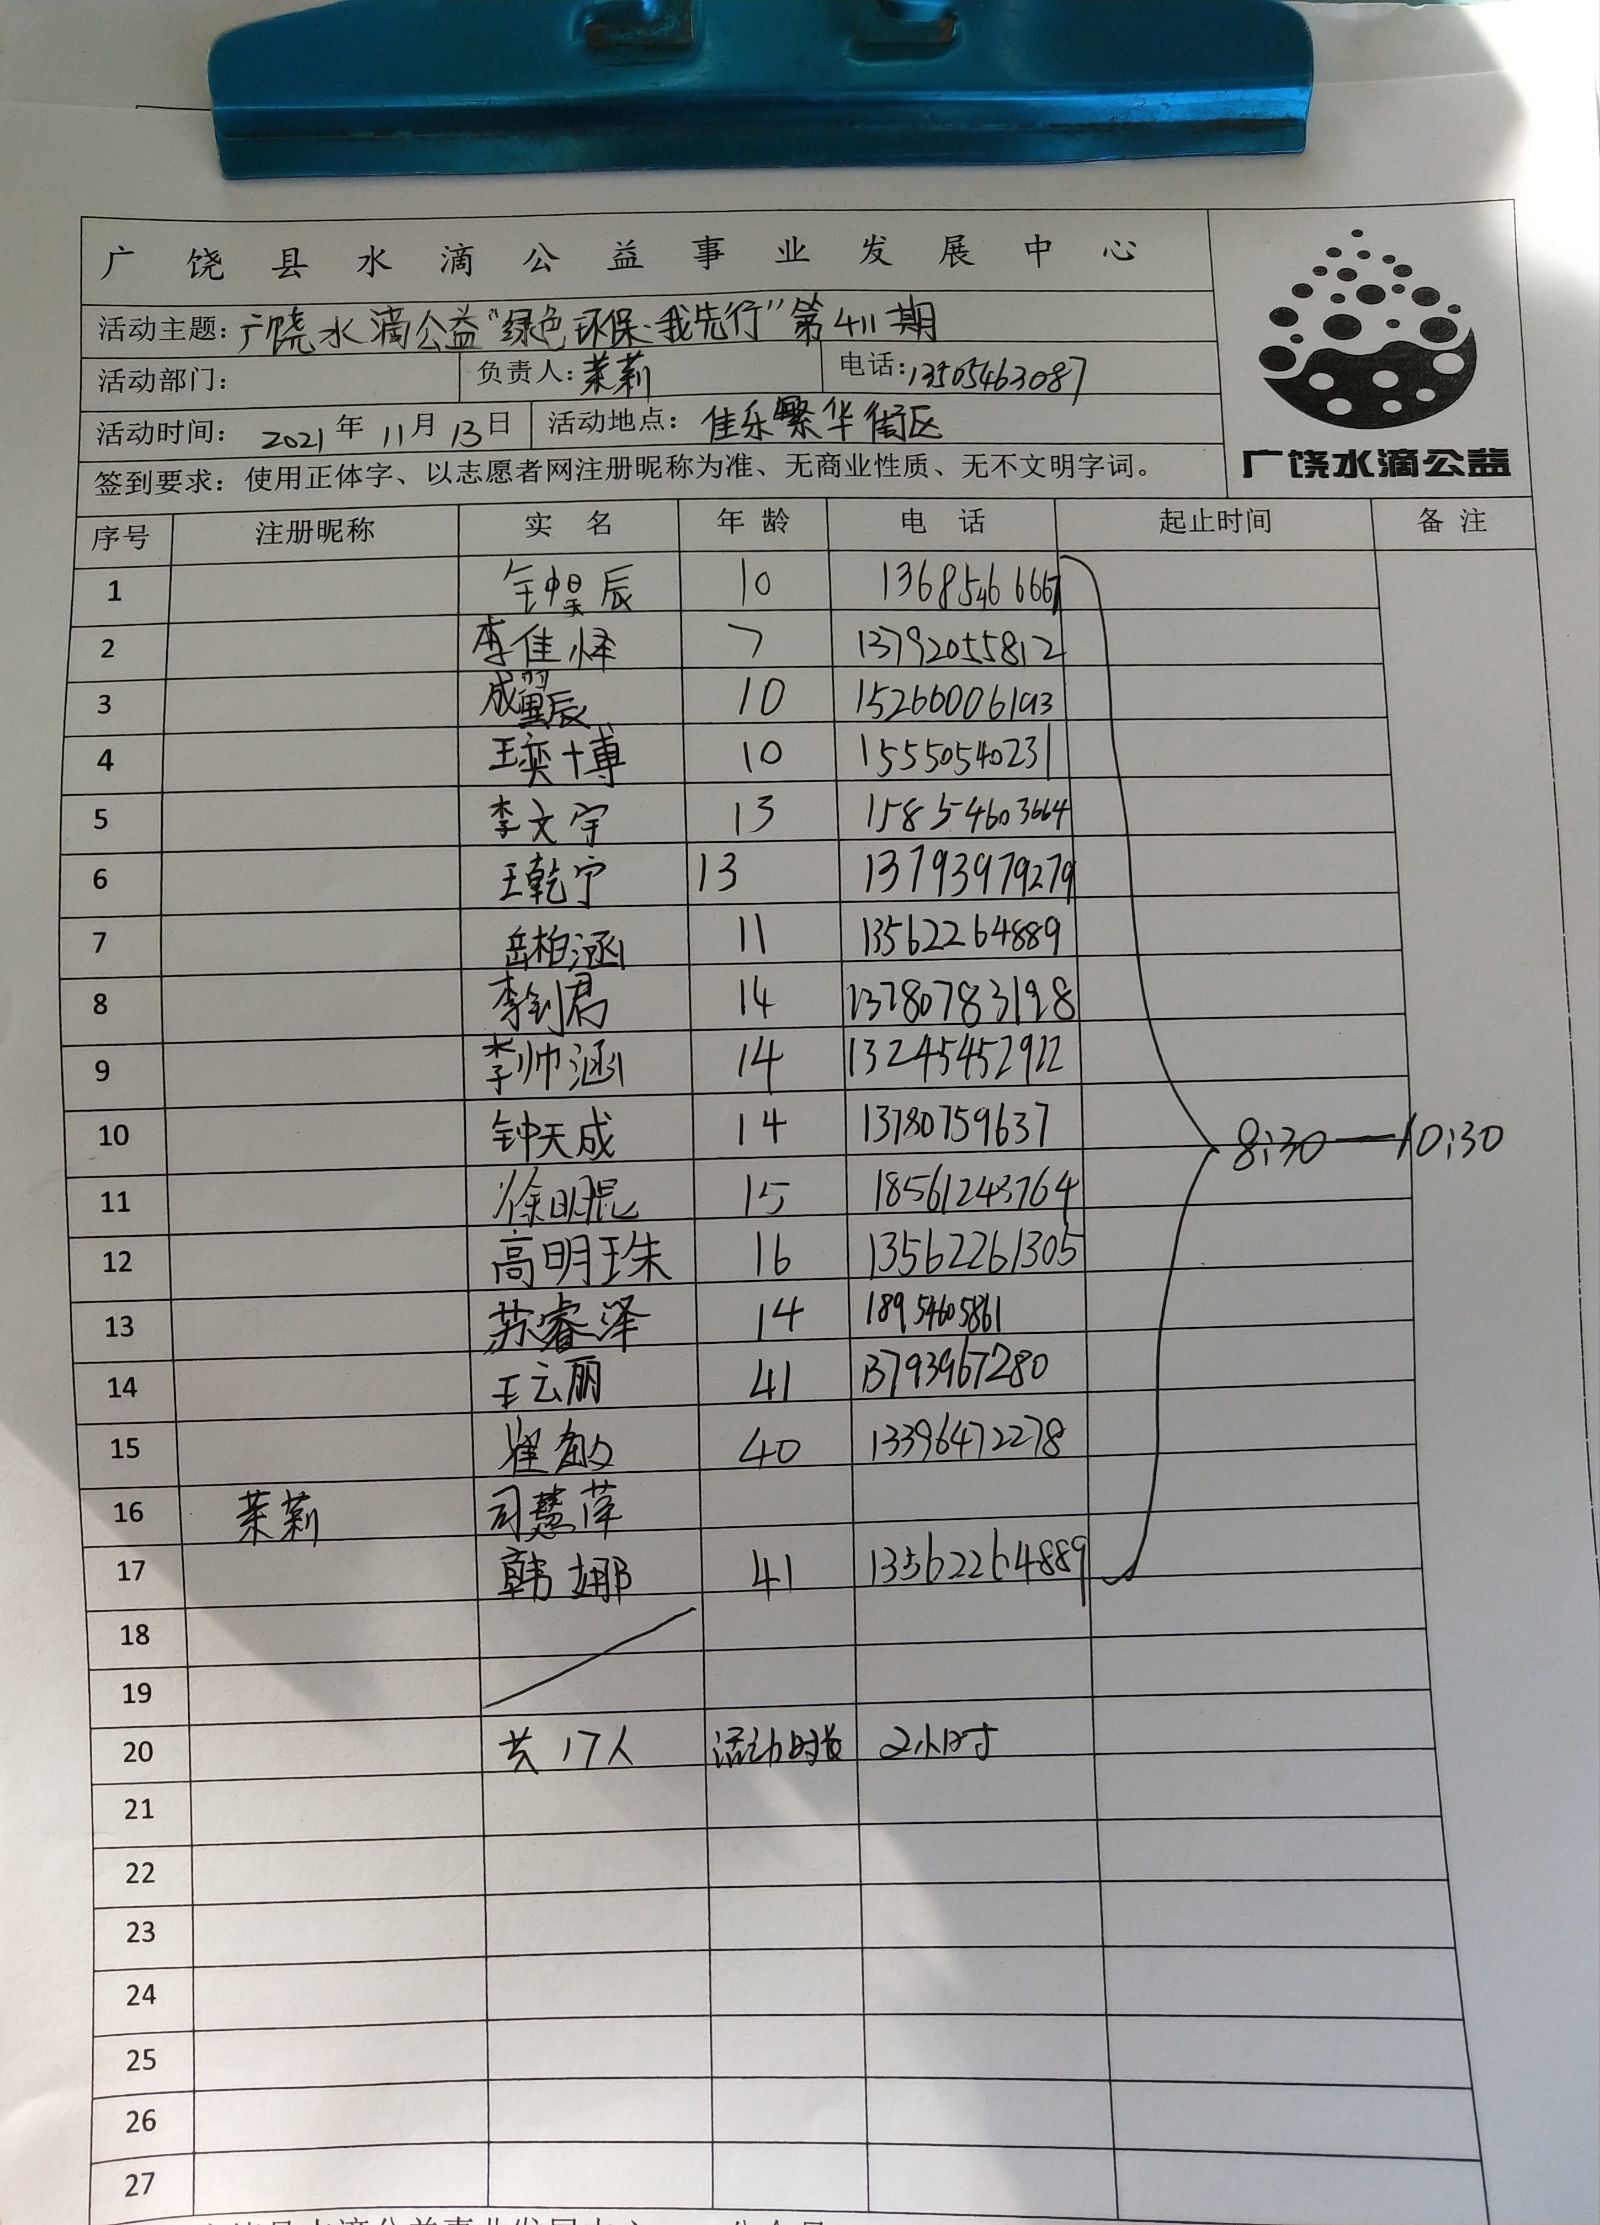 广饶县水滴公益事业发展中心
活动主题：广饶水滴公益“绿色环保·我先行”第411期
活动部门： 负责人：茉莉 电话：13505463087
活动时间：2021年11月13日 活动地点：佳乐繁华街区
广饶水滴公益
签到要求：使用正体字、以志愿者网注册昵称为准、无商业性质、无不文明字词。
序号 注册昵称 实名 年龄 电话 起止时间 备注
1 钟昊辰 10 13685466667
2 李佳烨 7 13792055812
3 成翼辰 10 15266006193
4 王奕博 10 15550540231
5 李文宇 13 15854603664
6 王乾宁 13 13793979279
7 岳柏涵 11 13562264889
8 李钊君 14 13780783198
9 李帅涵 14 13245452922
10 钟天成 14 13780759637 8:30—10:30
11 徐明昆 15 18561243764
12 高明珠 16 13562261305
13 苏睿泽 14 18954605861
14 王云丽 41 13793967280
15 崔敏 40 13396472278
16 茉莉 司慧萍
17 韩娜 41 13562264889
18
19
20 共17人 活动时长 2小时
21
22
23
24
25
26
27